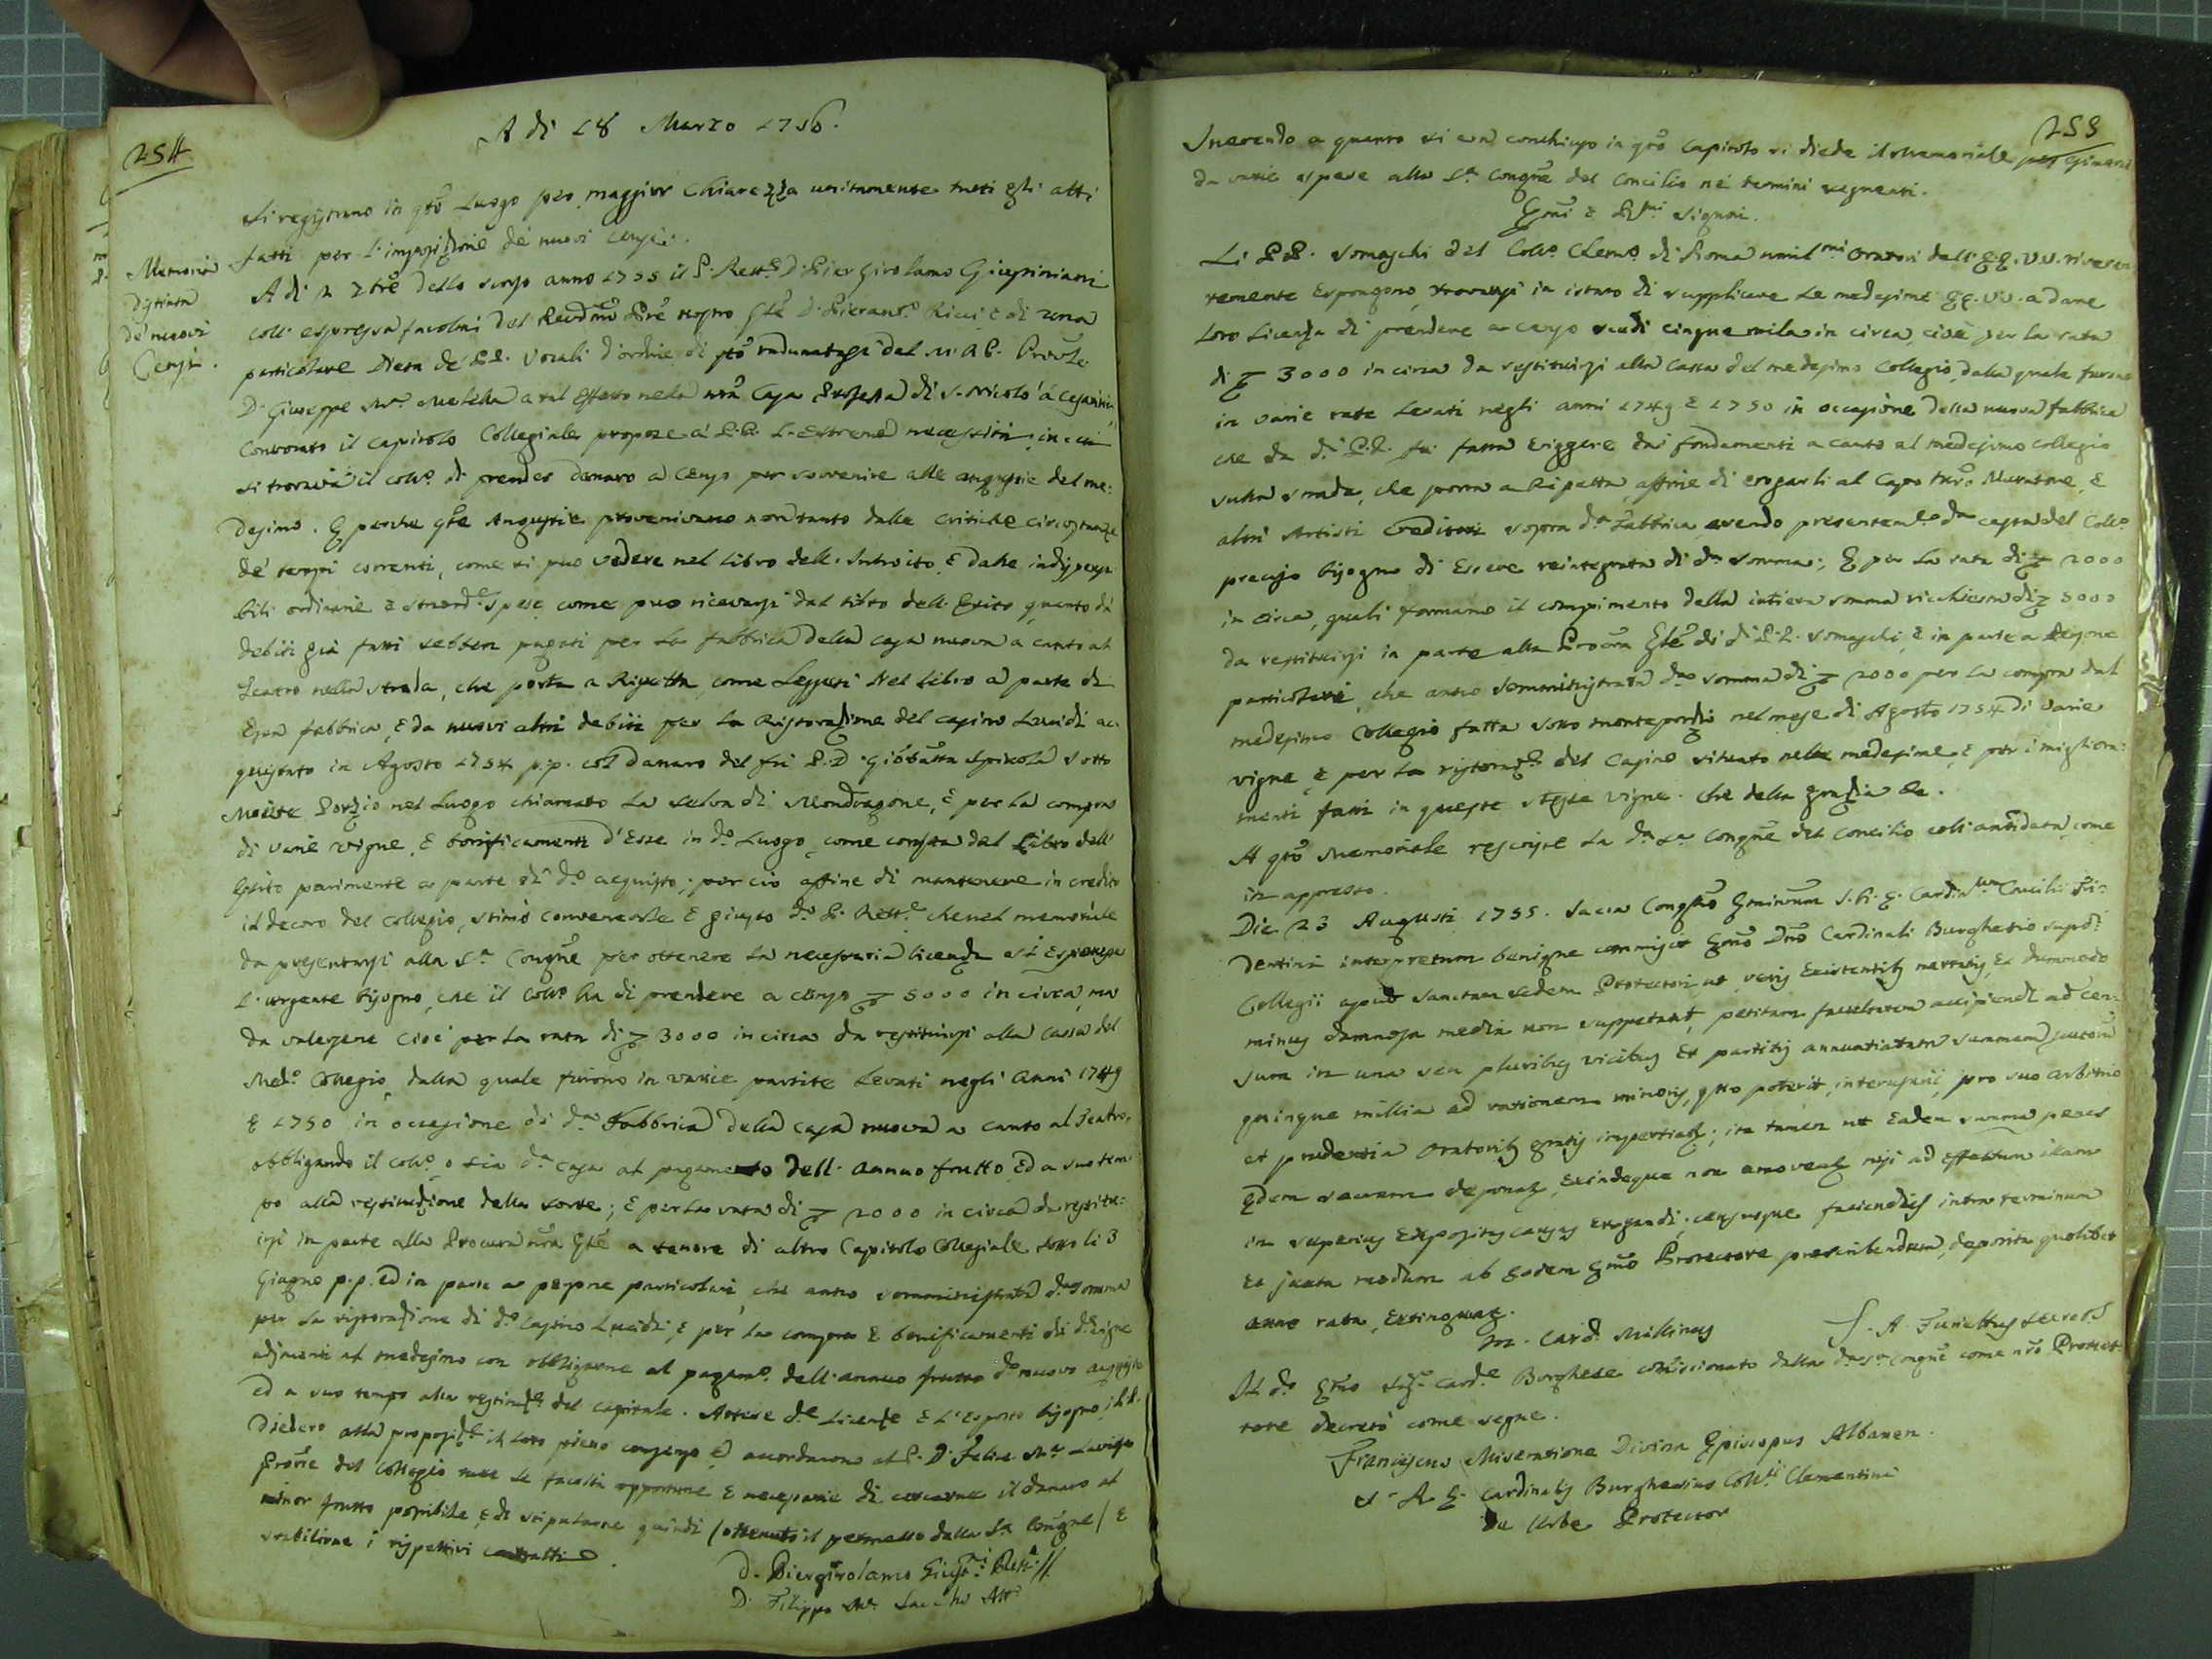 254
A di 28 Marzo 1756.
Memoria
distinta
de' nuovi
Censi.
Si registrano in qsto Luogo per maggior Chiarezza unitamente tutti gli atti
fatti per l'imposizione de' nuovi Censi.
A di 2 7bre dello scorso anno 1755 il P. Rettre D. Pier Girolamo Giustiniani
coll' espressa facoltà del Revdmo Pre nostro Gle D. Pieranto Ricci e di una
particolare Dieta de' PP. Vocali d'ordine di qsto radunatasi dal M. R. P. Provle
D. Giuseppe Ma Melella a tal effetto nella nra Casa Professa di S. Nicolò a' Cesarini,
Convocato il Capitolo Collegiale propose a' P.P. l'estrema necessità, in cui
si trovava il Collo di prender danaro a Censo per sovvenire alle angustie del me:
desimo. E perche qste Angustie provenivano non tanto dalle critiche circostanze
de' tempi correnti, come si può vedere nel Libro dell' Introito, e dalle indispensa
bili ordinarie e straorde spese come può ricavarsi dal libro dell' Esito, quanto da'
debiti già fatti sebben pagati per la fabbrica della casa nuova a canto al
Teatro nella strada, che porta a Ripetta, come Leggesi Nel Libro a parte di
Essa fabbrica, e da nuovi altri debiti per la Ristorazione del casino Lucidi ac:
quistato in Agosto 1754 p.p. col danaro del fu P. D. Giobatta Spinola sotto
Monte Porzio nel Luogo chiamato La Selva di Mondragone, e per la compra
di varie vigne, e bonificamenti d'Esse in do Luogo, come consta dal Libro dell'
Esito parimente a parte di do acquisto; perciò affine di mantenere in credito
il decoro del Collegio, stimò convenevole e giusto do P. Rettre che nel memoriale
da presentarsi alla Sa Congne per ottenere la necessaria licenza si Esponesse
l'urgente bisogno, che il Collo ha di prendere a censo ▽ 5000 in circa, ma
da valersene cioè per la rata di ▽ 3000 in circa da restituirsi alla Cassa del
Medo Collegio, dalla quale furono in varie partite Levati negli Anni 1749
e 1750 in occasione di da Fabbrica della casa nuova a canto al Teatro,
obbligando il Collo o sia da casa al pagamento dell' annuo frutto, ed a suo tem
po alla restituzione della sorte; e per la rata di ▽ 2000 in circa da restitu:
irsi in parte alla Procura nra Gle a tenore di altro Capitolo Collegiale sotto li 3
Giugno p.p. ed in parte a persone particolari, che anno somministrata da somma
per la ristorazione di do Casino Lucidi, e per la compra e bonificamenti di de vigne
adjacenti al medesimo con obbligarne al pagamo dell' annuo frutto do nuovo acquisto
ed a suo tempo alla restituzne del capitale. Attese de Licenze e l'Esposto bisogno, i PP.
diedero alla proposizne il loro pieno consenso ed accordarono al P. D. Felice Ma Laviosa
Procre del Collegio tutte le facoltà opportune e necessarie di cercarne il danaro al
minor frutto possibile, e di stipularne quindi (ottenuto il permesso dalla Sa Congne) e
stabilirne i rispettivi contratti.
D. Piergirolamo Giustni Rettre
D. Filippo Ma Sacchi Atto
255
Inerendo a quanto si era conchiuso in qsto Capitolo si diede il Memoriale
da varie spese alla Sa Congne del Concilio nei termini seguenti.
Emi e Rmi Signori.
Li PP. Somaschi del Collo Clemno di Roma umilmi Oratori dell' EE. VV. riveren
temente Espongono, trovarsi in istato di supplicare Le medesime EE. VV. a dare
Loro Licenza di prendere a censo scudi cinque mila in circa, cioè per la rata
di ▽ 3000 in circa da restituirsi alla Cassa del medesimo Collegio, dalla quale furono
in varie rate Levati negli anni 1749 e 1750 in occasione della nuova fabbrica
che da di P.P. fu fatta eriggere dai fondamenti a canto al medesimo Collegio
sulla strada, che porta a Ripetta, affine di erogarli al Capo Mro Muratore, e
altri Artisti Creditori sopra da Fabbrica, avendo presentemte da cassa del Collo
preciso bisogno di Essere reintegrata di da Somma; E per la rata di ▽ 2000
in circa, quali formano il compimento della intiera somma richiesta di ▽ 5000
da restituirsi in parte alla Procura Gle di di P.P. Somaschi, e in parte a Persone
particolari, che anno somministrata da somma di ▽ 2000 per la compra dal
medesimo Collegio fatta sotto monteporzio nel mese di Agosto 1754 di varie
vigne, e per la ristorazne del Casino situato nelle medesime, e per i migliora:
menti fatti in queste stesse vigne. Che della grazia &c.
A qsto Memoriale rescrisse la da Sa Congne del Concilio coll' antidata, come
in appresso.
Die 23 Augusti 1755. Sacra Congtio Eminorum S. R. E. Cardinm Concilii Tri:
dentini interpretum benigne commisit Emo Dno Cardinali Burghesio supdi
Collegii apud Sanctam Sedem Protectori, ut veris Existentibus narratis, Et dummodo
minus damnosa media non suppetant, petitam facultatem accipiendi ad Cen:
sum in una seu pluribus vicibus Et partitis annuntiatam summam scutorum
quinque millia ad rationem minoris, quo poterit, interusurii, pro suo arbitrio
et prudentia Oratoribus gratis impertiatur; ita tamen ut Eadem summa penes
Edem sacram deponatur, Exindeque non amoveatur nisi ad Effectum illam
in superius Expositas causas Erogandi; censusque faciendus intra terminum
Et juxta modum ab Eodem Emo Protectore praescribendum, deposita quolibet
anno rata, Extinguatur.
M. Card. Millinus
J. A. Furiettus Secretus
Il do Emo Sigr Carde Borghese commissionato dalla da Sa Congne come nro Protet
tore decretò come segue.
Franciscus Miseratione Divina Episcopus Albanen.
S. R. E. Cardinalis Burghesius Collii Clementini
de Urbe Protector